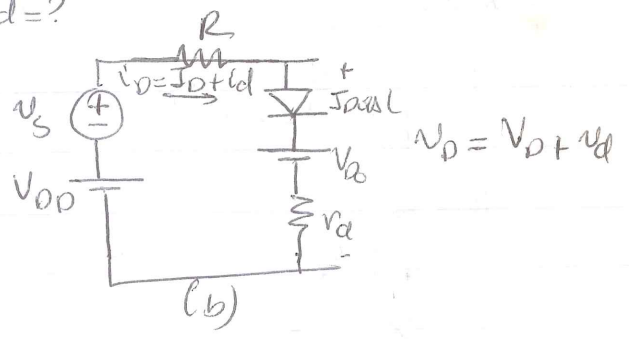 d=?
R
i_D=I_D+i_d
+
IDEAL
v_S
+
-
V_D0
v_D = V_D + v_d
V_DD
r_d
-
(b)